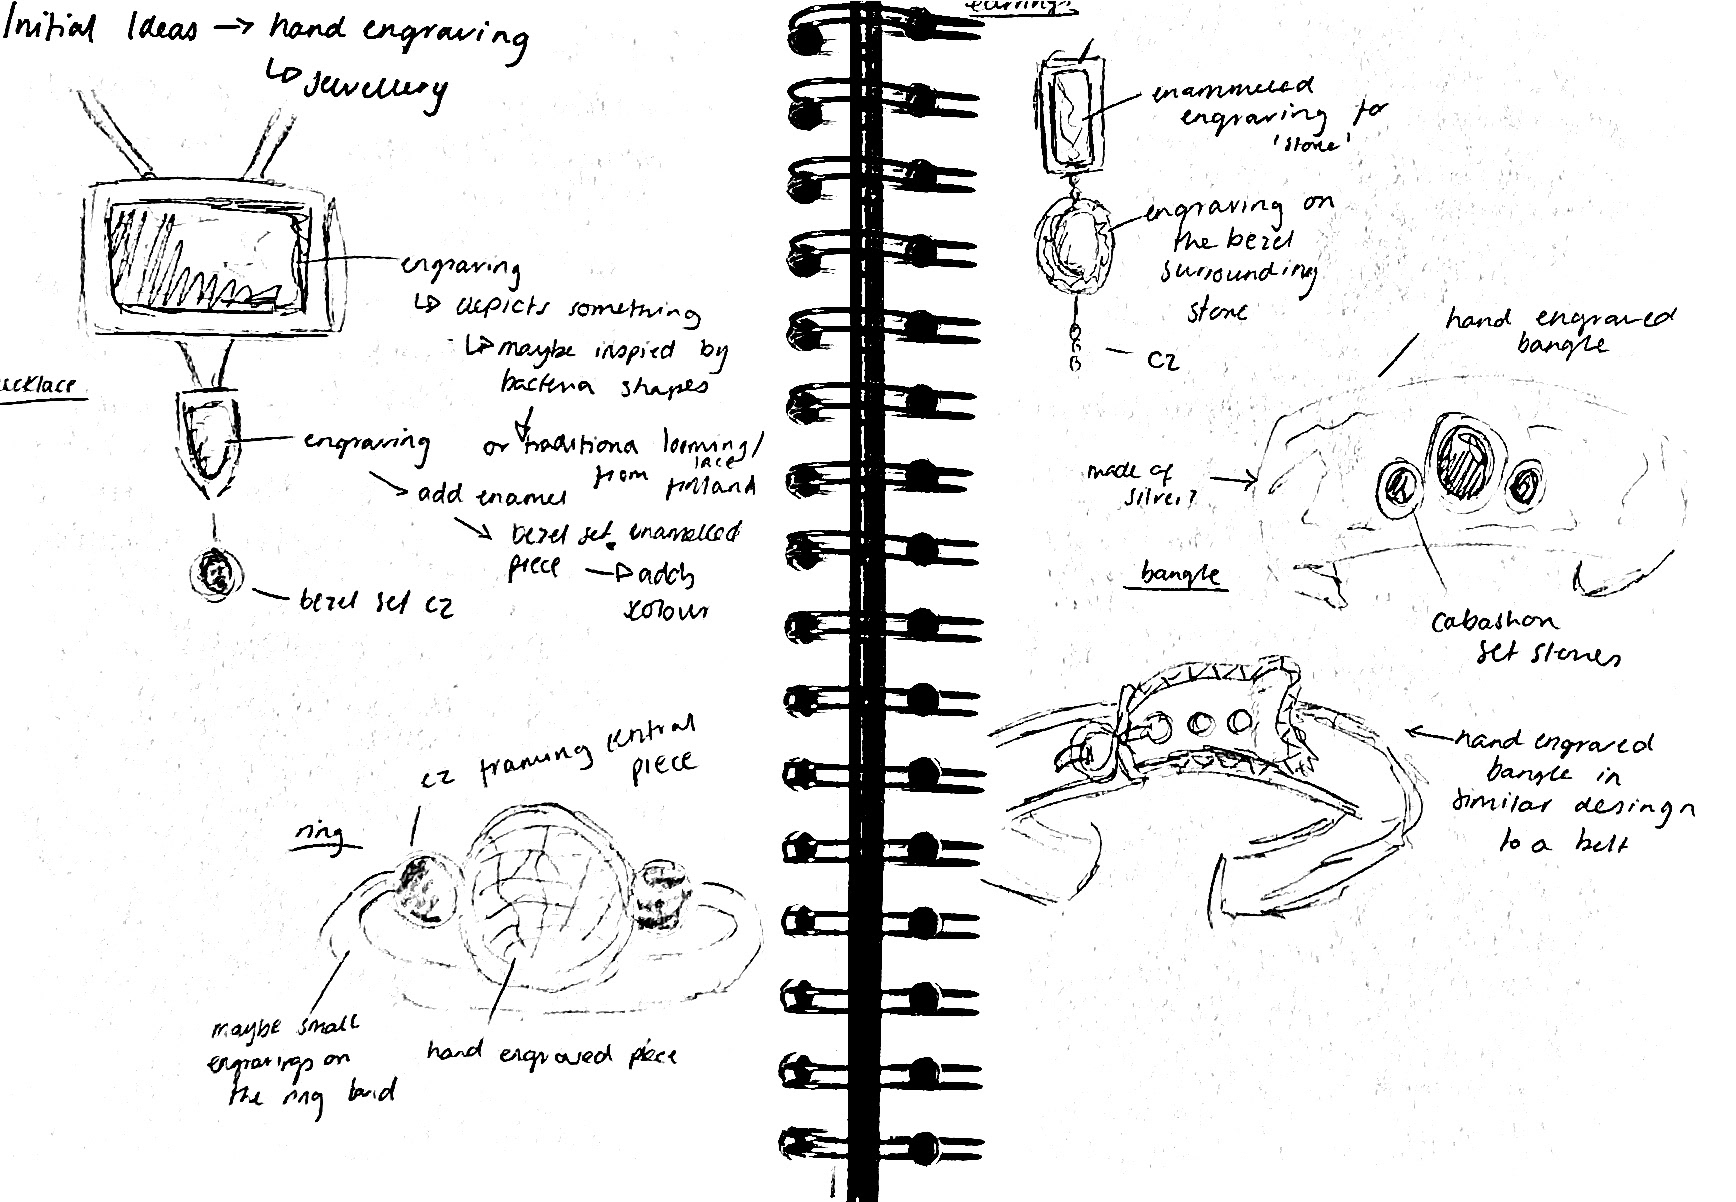 Initial Ideas → hand engraving
↳ Jewellery
engraving
↳ depicts something
↳ maybe inspied by
bacteria shapes
or traditiona looming/
lace
from finland
ecklace
engraving
add enamel
bezel set enamelled
piece → adds
colour
bezel set cz
cz framing central
piece
ring
maybe small
engravings on
the ring band
hand engraved piece
earrings
enammeled
engraving for
'stone'
engraving on
the bezel
surrounding
stone
cz
hand engraved
bangle
made of
silver?
bangle
cabashon
set stones
hand engraved
bangle in
similar desingn
to a belt